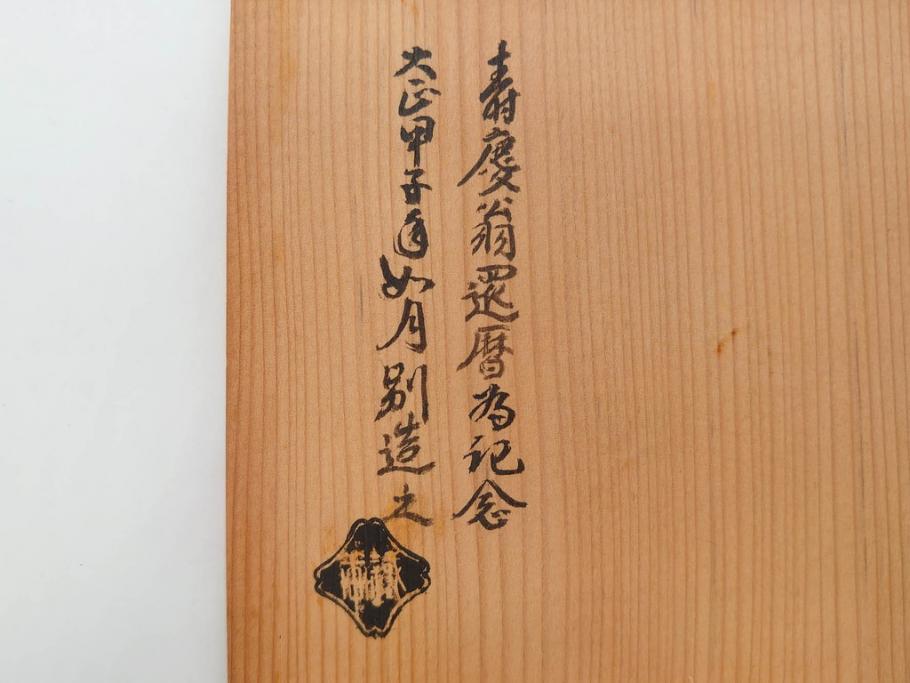 寿慶翁還暦為記念
大正甲子年如月別造之